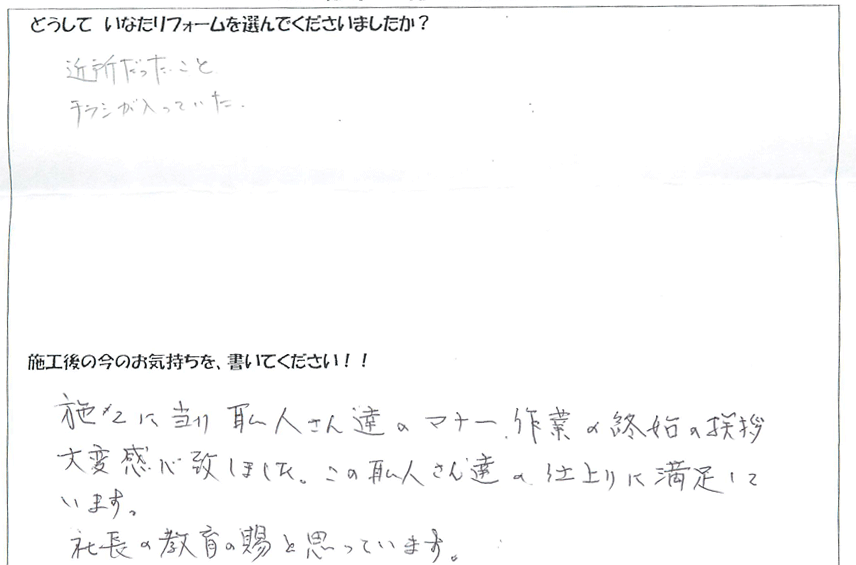 どうして いなたリフォームを選んでくださいましたか？
近所だったこと
チラシが入っていた.
施工後の今のお気持ちを、書いてください！！
施工に当り 職人さん達のマナー、作業の終始の挨拶
大変感心致しました。この職人さん達の仕上りに満足して
います。
社長の教育の賜と思っています。